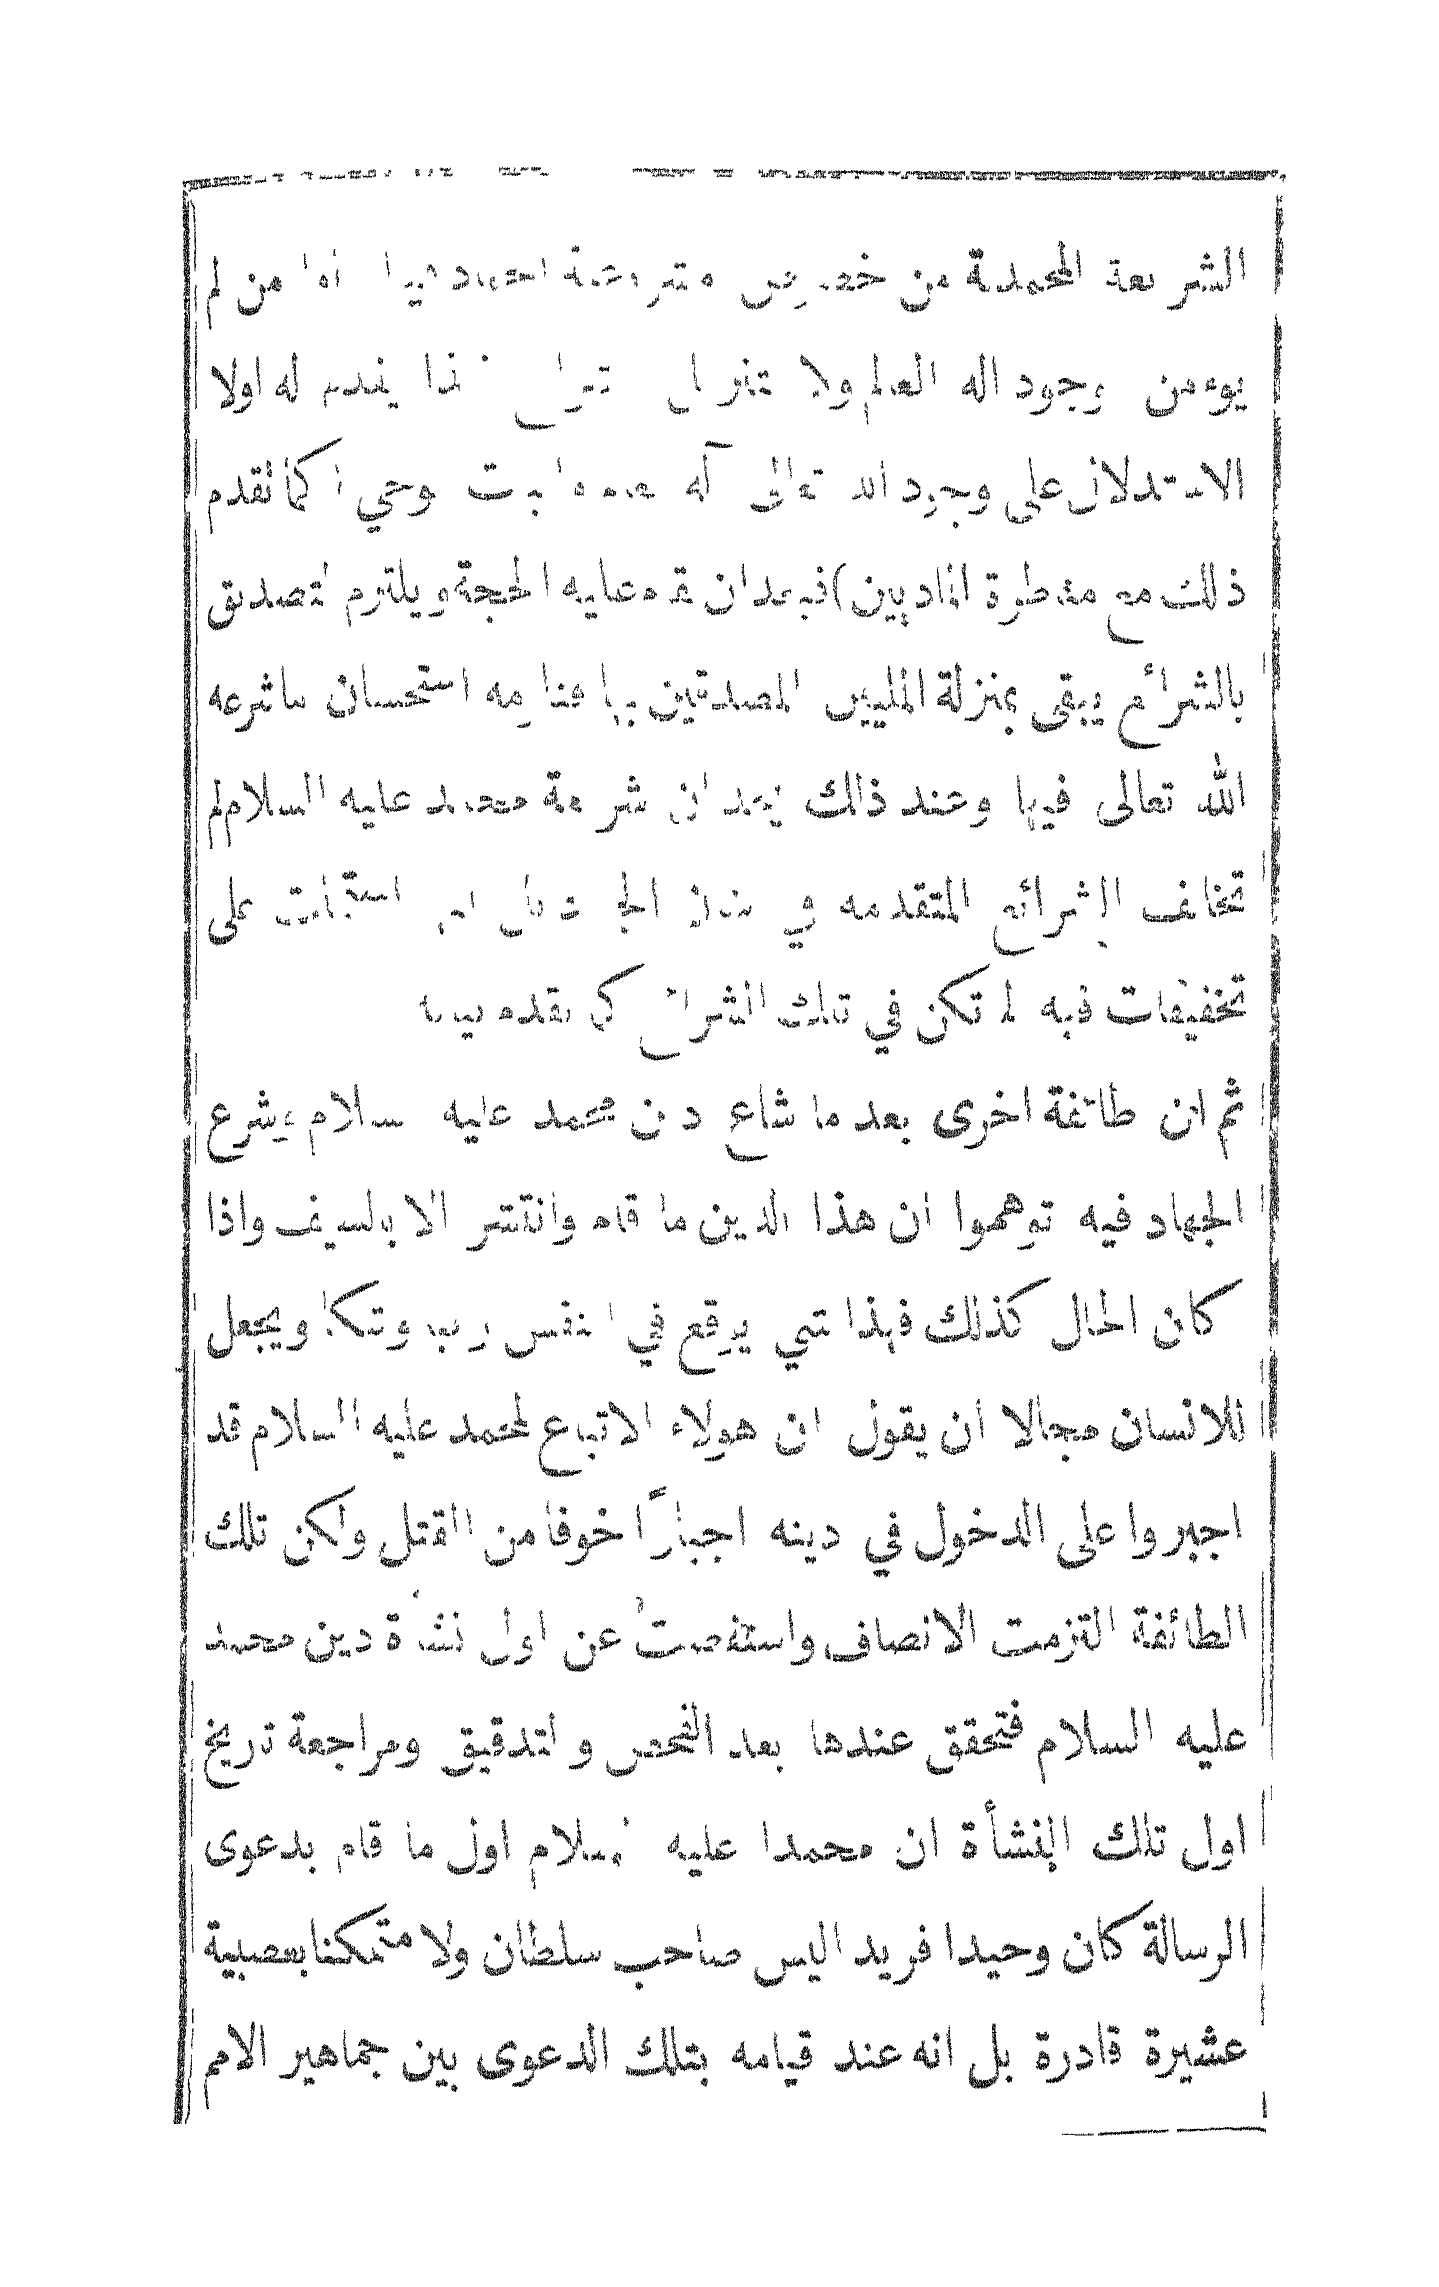 الشريعة المحمدية من خصوص مشروعية الجهاد فيها اما من لم
يوءمن بوجود اله العالم ولا له اولا
الاستدلال على وجود الله تعالى كما تقدم
ذلك مع مناظرة الماديين) فبعد ان عليه الحجة ويلتزم التصديق
بالشرائع يبقى بمنزلة المليين المصدقين بها استحسان ما شرعه
الله تعالى فيها وعند ذلك يجد ان شريعة محمد عليه السلام لم
تخالف الشرائع المتقدمه في بل اشتملت على
تخفيفات فيه لم تكن في تلك الشرائع كما تقدم بيانه
ثم ان طائفة اخرى بعد ما شاع دين محمد عليه السلام بشرع
الجهاد فيه توهموا ان هذا الدين ما قام وانتشر الا بالسيف واذا
كان الحال كذلك فهذا شي يوقع في النفس ويجعل
للانسان مجالا ان يقول ان هولاء الاتباع لمحمد عليه السلام قد
اجبروا على الدخول في دينه اجبارًا خوفا من القتل ولكن تلك
الطائفة التزمت الانصاف واستفحصت عن اول نشأة دين محمد
عليه السلام فتحقق عندها بعد الفحص والتدقيق ومراجعة تاريخ
اول تلك النشأة ان محمدا عليه السلام اول ما قام بدعوى
الرسالة كان وحيدا فريد اليس صاحب سلطان ولا متمكنا بعصبية
عشيرة قادرة بل انه عند قيامه بتلك الدعوى بين جماهير الامم